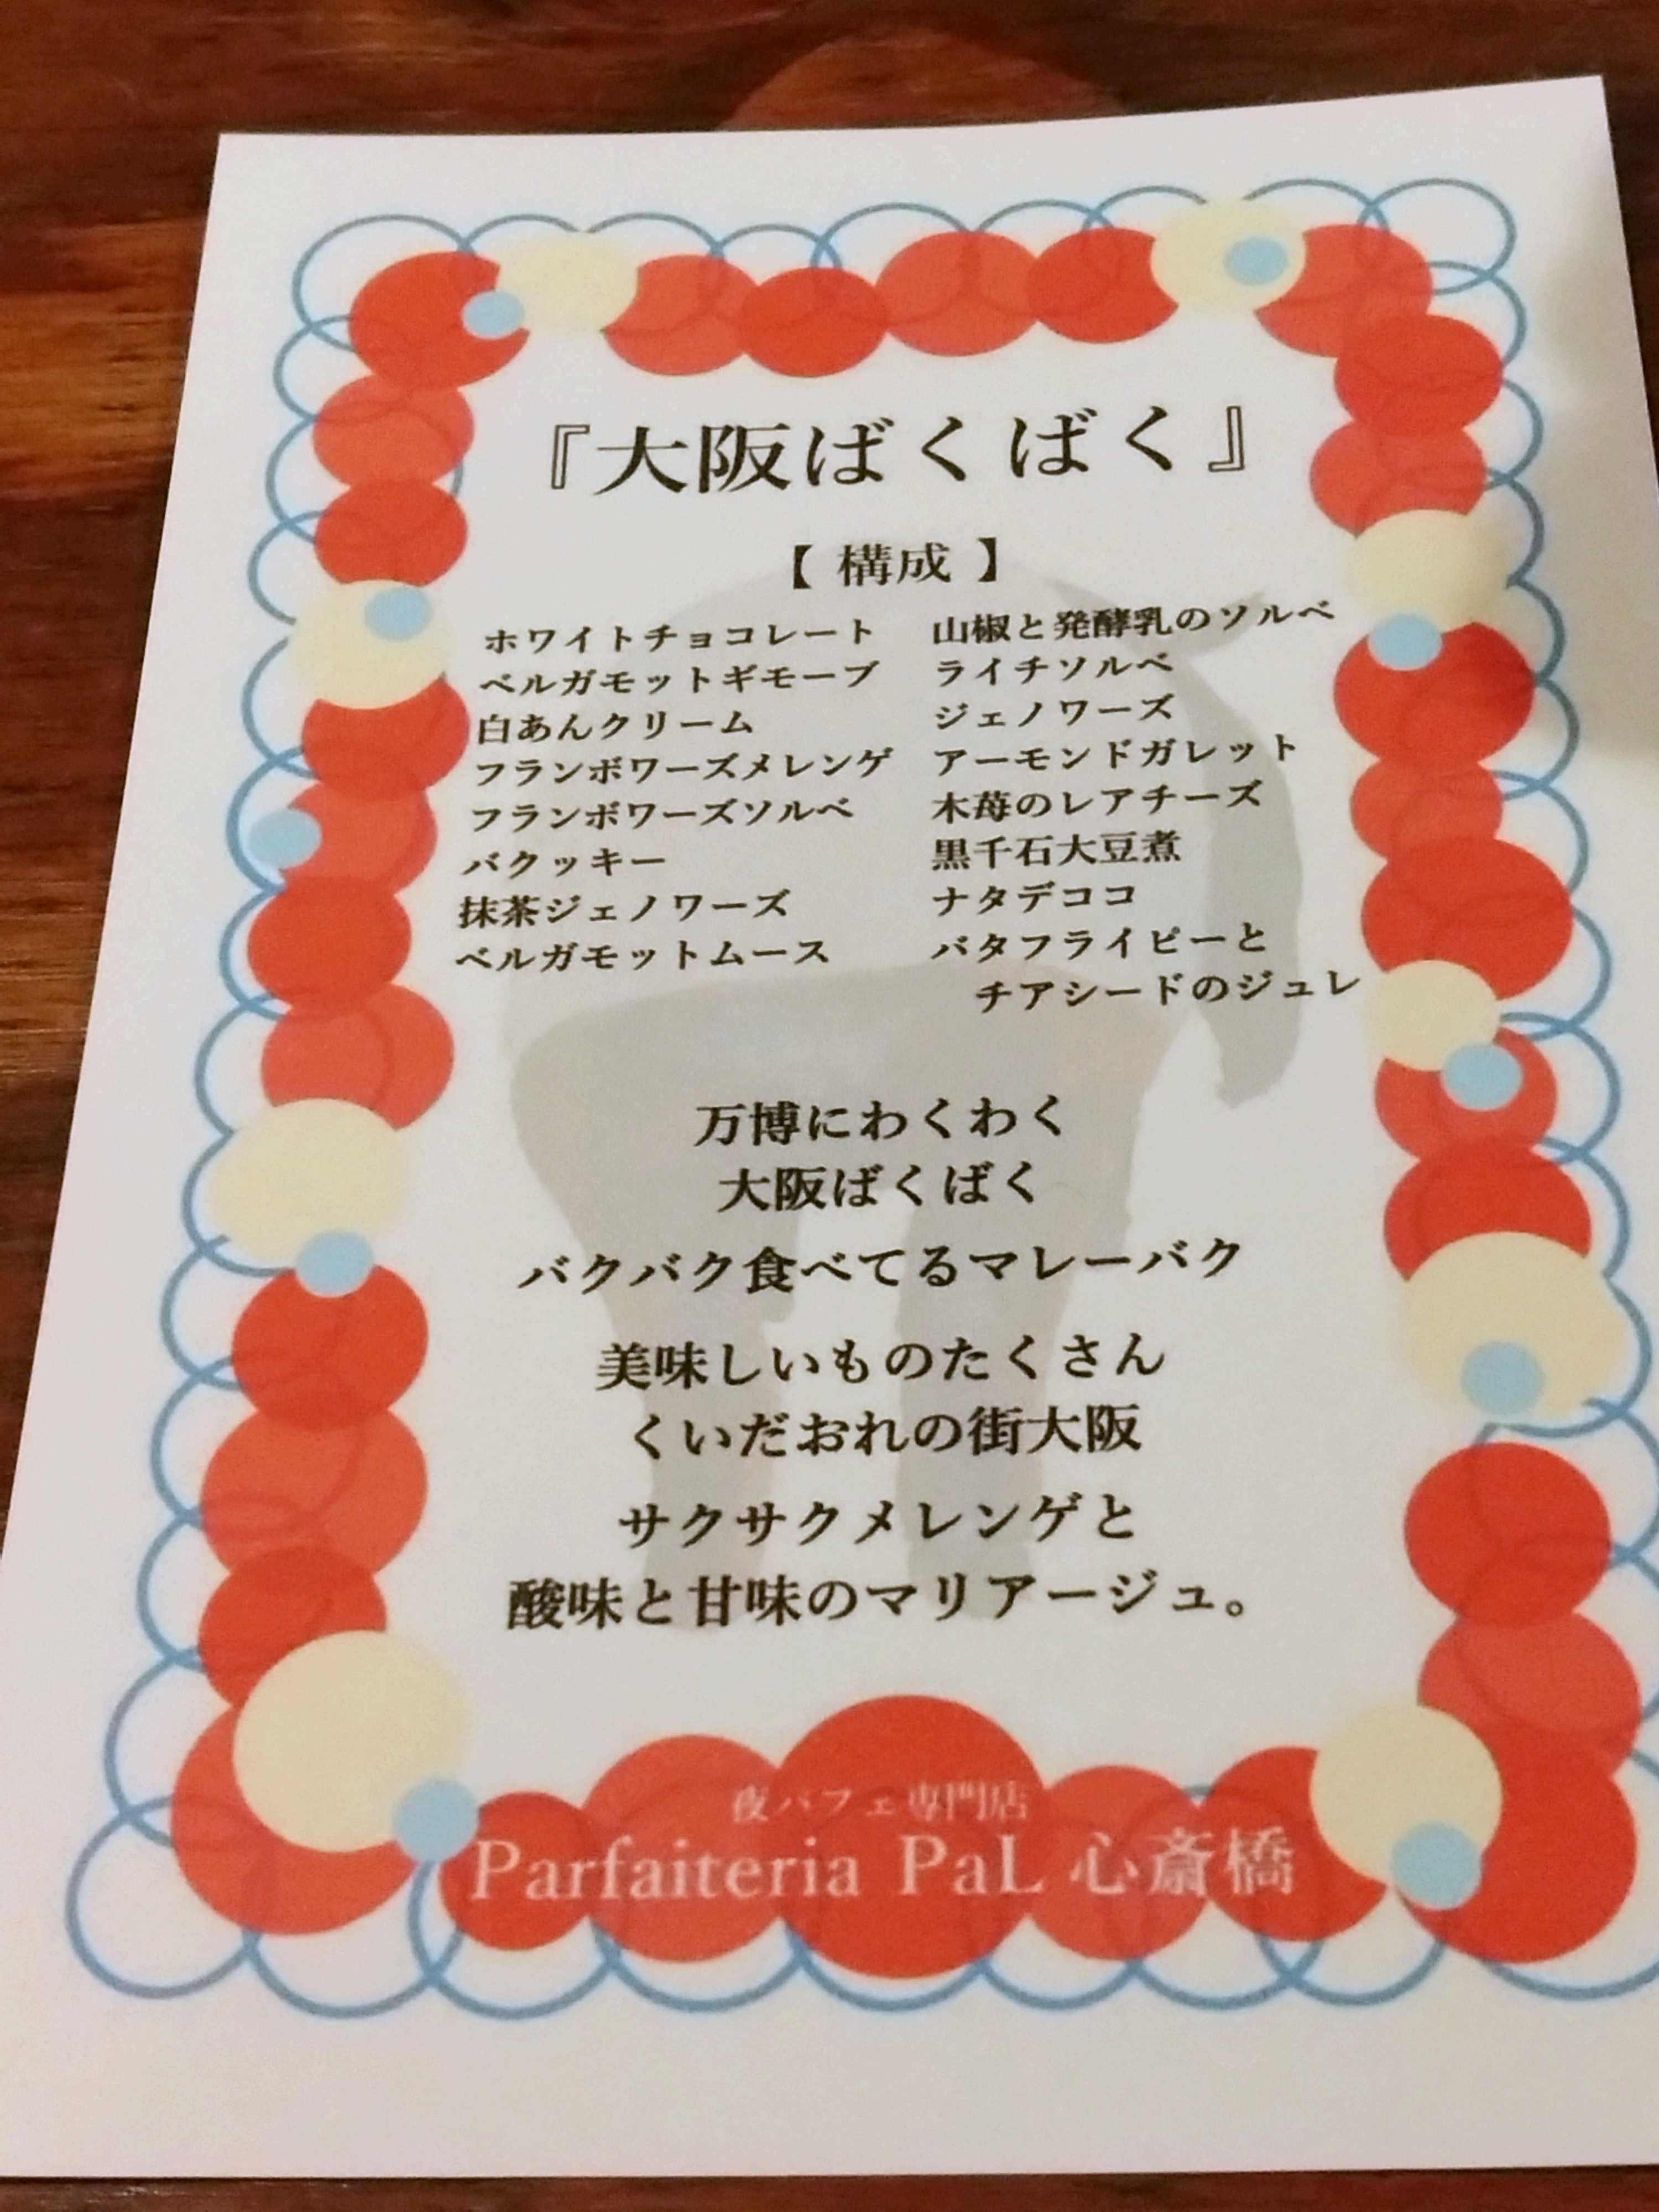 『大阪ばくばく』
【 構成 】
ホワイトチョコレート
ベルガモットギモーブ
白あんクリーム
フランボワーズメレンゲ
フランボワーズソルベ
バクッキー
抹茶ジェノワーズ
ベルガモットムース
山椒と発酵乳のソルベ
ライチソルベ
ジェノワーズ
アーモンドガレット
木苺のレアチーズ
黒千石大豆煮
ナタデココ
バタフライピーと
チアシードのジュレ
万博にわくわく
大阪ばくばく
バクバク食べてるマレーバク
美味しいものたくさん
くいだおれの街大阪
サクサクメレンゲと
酸味と甘味のマリアージュ。
夜パフェ専門店
Parfaiteria PaL 心斎橋